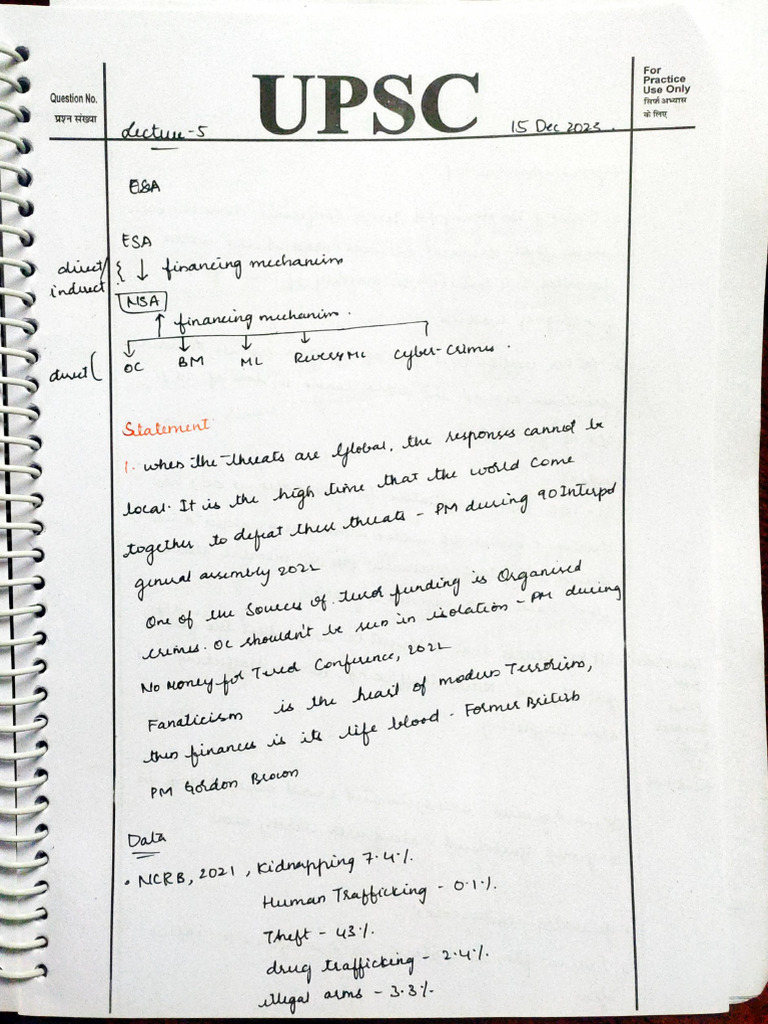 Question No.
प्रश्न संख्या
UPSC
For
Practice
Use Only
सिर्फ अभ्यास
के लिए
Lecture-5
15 Dec 2023.
ESA
ESA
direct/
indirect
{ ↓ financing mechanism
NSA
↑ financing mechanism.
direct (
OC BM ML Reverse ML Cyber-Crimes.
Statement
1. when the threats are Global, the responses cannot be
local. It is the high time that the world come
together to defeat these threats - PM during 90 Interpol
general assembly 2022
One of the Sources of terror funding is Organised
crimes. OC shouldn't be seen in isolation - PM during
No Money for Terror Conference, 2022
Fanaticism is the heart of modern Terrorism,
then finances is its life blood - Former British
PM Gordon Brown
Data
• NCRB, 2021, Kidnapping 7.4%.
Human Trafficking - 0.1%.
Theft - 43%.
drug trafficking - 2.4%.
illegal arms - 3.3%.